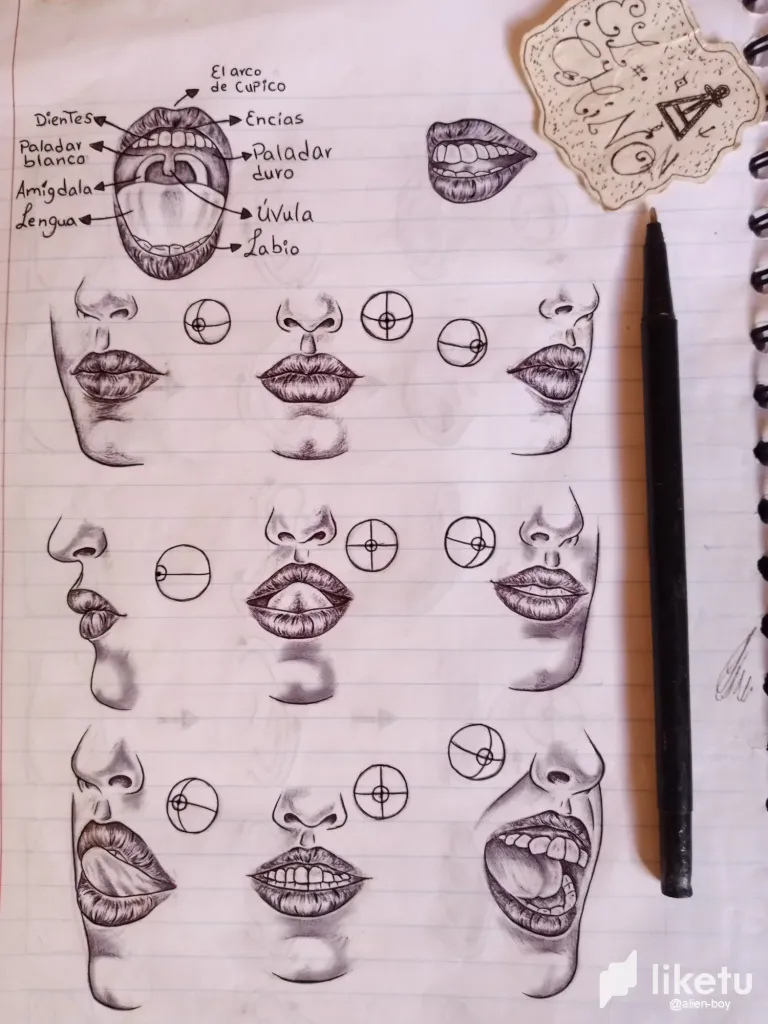 El arco
de Cupico
Dientes
Encías
Paladar
blanco
Paladar
duro
Amigdala
Lengua
Úvula
Labio
EL
CHINO
liketu
@alien-boy